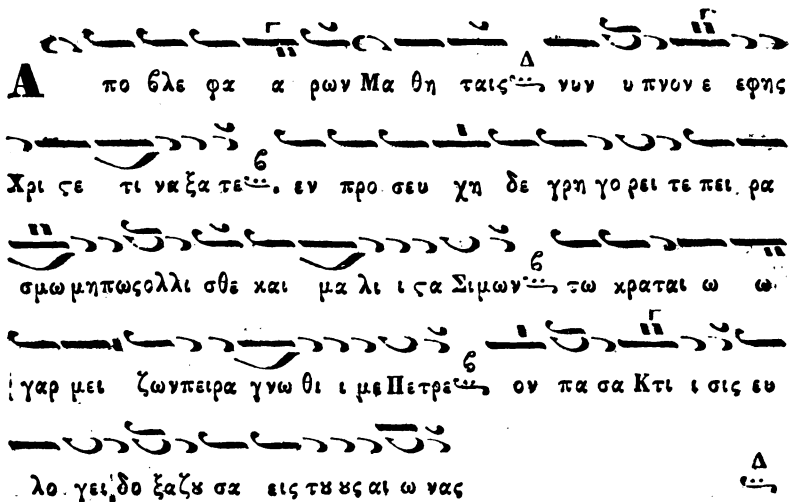 Α πο βλε φα α ρων Μα θη ταις Δ νυν υ πνον ε εφης
Χρι ϛε τι να ξα τε β εν προ σευ χη δε γρη γο ρει τε πει ρα
σμω μη πως ολλι σθε και μα λι ι ϛα Σιμων β τω κραται ω ω
γαρ μει ζων πειρα γνω θι ι με Πετρε β ον πα σα Κτι ι σις ευ
λο γει δο ξα ζȣ σα εις τȣ ȣς αι ω νας Δ